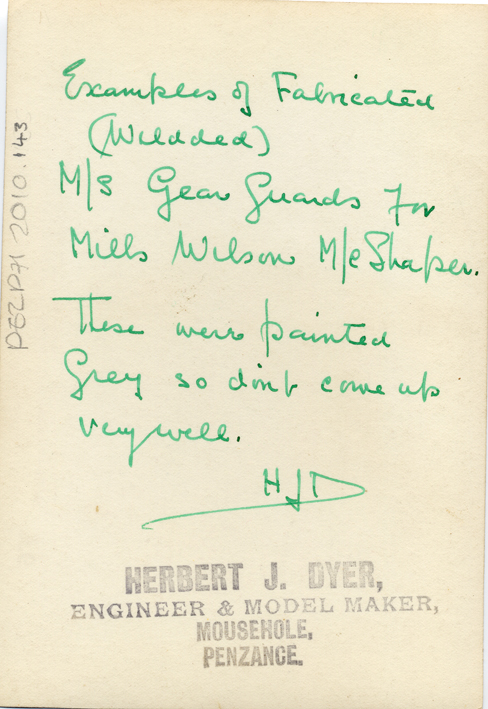 Examples of Fabricated
(Wildded)
M/S Gear Guards For
Mills Wilson M/c Shaper.
These were painted
Grey so dont come up
very well.
HJD
HERBERT J. DYER,
ENGINEER & MODEL MAKER,
MOUSEHOLE,
PENZANCE.
PEZPH 2010.143